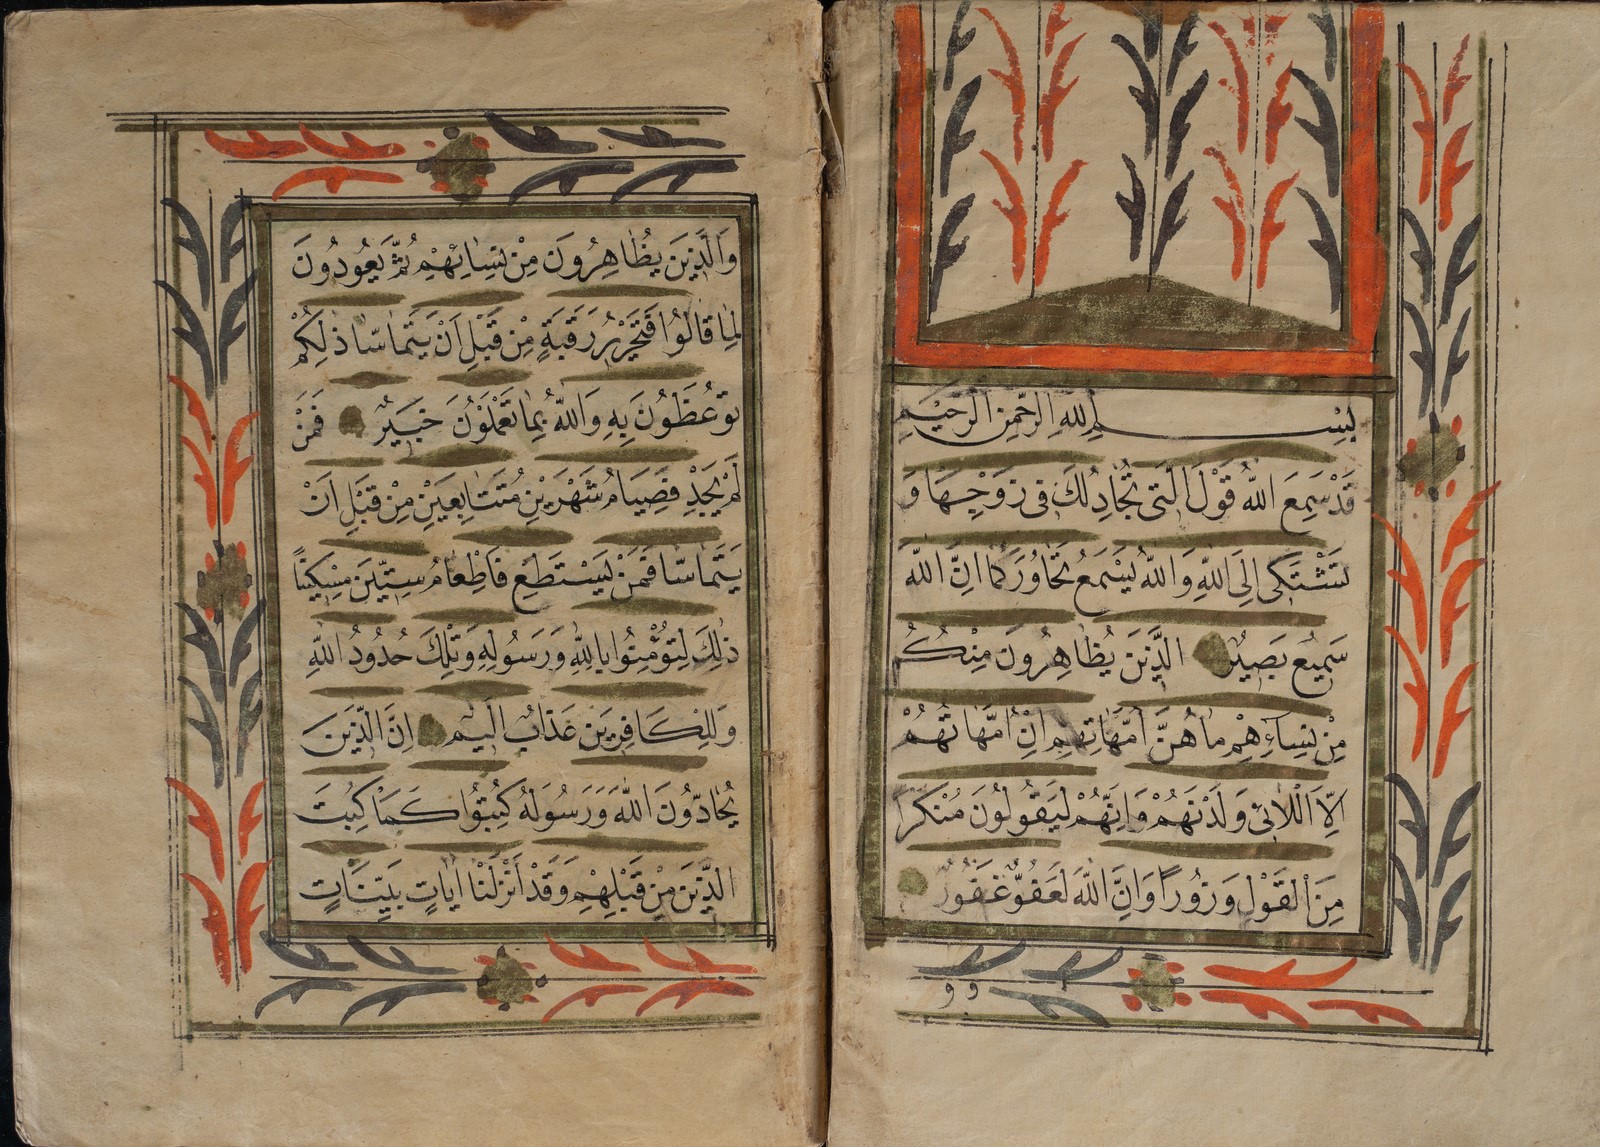 بِسْمِ اللهِ الرَّحْمٰنِ الرَّحِيْمِ
قَدْ سَمِعَ اللّٰهُ قَوْلَ الَّتِى تُجَادِلُكَ فِى زَوْجِهَا وَ
تَشْتَكِى اِلَى اللّٰهِ وَاللّٰهُ يَسْمَعُ تَحَاوُرَكُمَا اِنَّ اللّٰهَ
سَمِيْعٌ بَصِيْرٌ الَّذِيْنَ يُظَاهِرُونَ مِنْكُمْ
مِنْ نِسَاءِهِمْ مَا هُنَّ اُمَّهَاتِهِمْ اِنْ اُمَّهَاتُهُمْ
اِلَّا اللَّائِى وَلَدْنَهُمْ وَاِنَّهُمْ لَيَقُولُونَ مُنْكَرًا
مِنَ الْقَوْلِ وَزُورًا وَاِنَّ اللّٰهَ لَعَفُوٌّ غَفُوْرٌ
و و
وَالَّذِيْنَ يُظَاهِرُونَ مِنْ نِسَائِهِمْ ثُمَّ يَعُودُونَ
لِمَا قَالُوا فَتَحْرِيْرُ رَقَبَةٍ مِنْ قَبْلِ اَنْ يَتَمَاسَّا ذٰلِكُمْ
تُوْعَظُوْنَ بِهِ وَاللّٰهُ بِمَا تَعْمَلُوْنَ خَبِيْرٌ فَمَنْ
لَمْ يَجِدْ فَصِيَامُ شَهْرَيْنِ مُتَتَابِعَيْنِ مِنْ قَبْلِ اَنْ
يَتَمَاسَّا فَمَنْ لَمْ يَسْتَطِعْ فَاِطْعَامُ سِتِّيْنَ مِسْكِيْنًا
ذٰلِكَ لِتُؤْمِنُوا بِاللّٰهِ وَرَسُولِهِ وَتِلْكَ حُدُودُ اللّٰهِ
وَلِلْكَافِرِيْنَ عَذَابٌ اَلِيْمٌ اِنَّ الَّذِيْنَ
يُحَادُّوْنَ اللّٰهَ وَرَسُولَهُ كُبِتُوا كَمَا كُبِتَ
الَّذِيْنَ مِنْ قَبْلِهِمْ وَقَدْ اَنْزَلْنَا اٰيَاتٍ بَيِّنَاتٍ